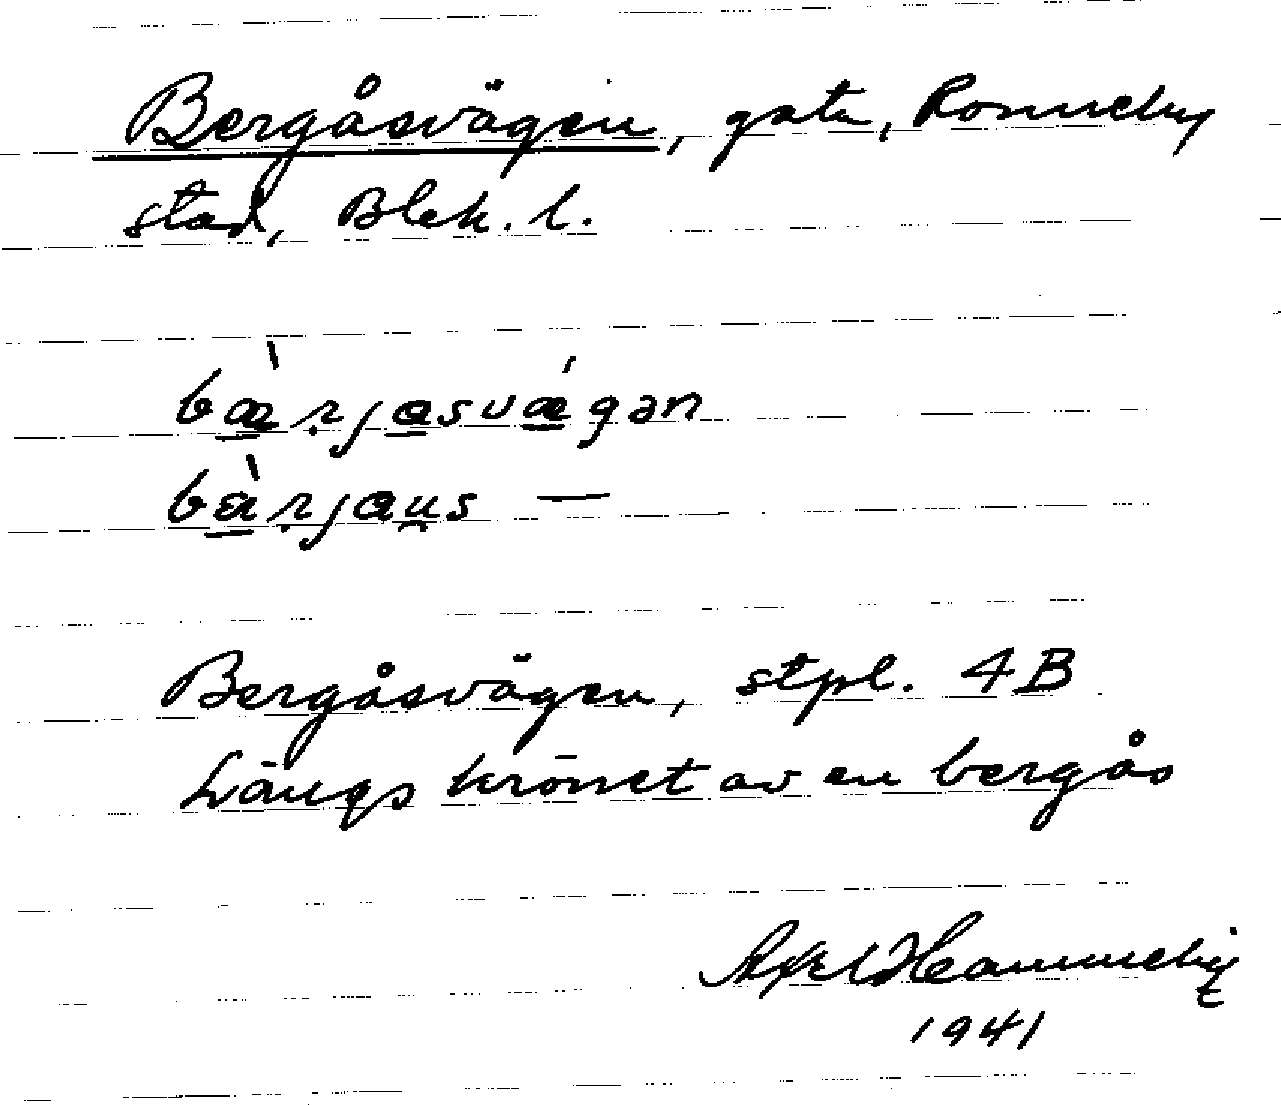 Bergåsvägen, gata, Ronneby
stad, Blek. l.
bæ̀rjasvǽgən
bàrjaus —
Bergåsvägen, stpl. 4B
Längs krönet av en bergås
Axel Hammeby
1941